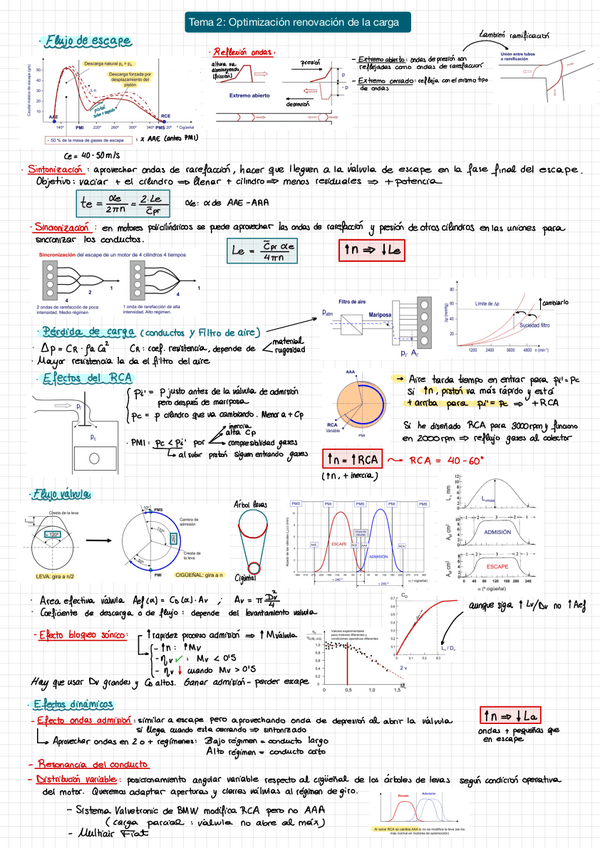 Tema 2: Optimización renovación de la carga
· Flujo de escape
Descarga natural
Descarga forzada por desplazamiento del pistón
AAE
PMI
RCE
PMS
~ 50 % de la masa de gases de escape
x AAE (antes PMI)
Ce = 40-50 m/s
· Reflexión ondas:
presión
Extremo abierto
depresión
- Extremo abierto: ondas de presión son
reflejadas como ondas de rarefacción
- Extremo cerrado: refleja con el mismo tipo
de ondas
también ramificación
Unión entre tubos
o ramificación
· Sintonización: aprovechar ondas de rarefacción, hacer que lleguen a la válvula de escape en la fase final del escape.
Objetivo: vaciar + el cilindro ⇒ llenar + cilindro ⇒ menos residuales ⇒ + potencia
te = αe / 2πn = 2·Le / C̄pr
αe: α de AAE - ARA
· Sincronización: en motores policilíndricos se puede aprovechar las ondas de rarefacción y presión de otros cilindros en las uniones para
sincronizar los conductos.
Le = C̄pr αe / 4πn
↑n ⇒ ↓Le
Sincronización del escape de un motor de 4 cilindros 4 tiempos
2 ondas de rarefacción de poca
intensidad. Medio régimen
1 onda de rarefacción de alta
intensidad. Alto régimen.
Filtro de aire
Mariposa
Límite de Δp
↑ cambiarlo
Suciedad filtro
1200 2400 3600 4800 n (min⁻¹)
· Pérdida de carga (conductos y Filtro de aire)
· Δp = CR · ρa Ca²
CR: coef. resistencia, depende de
material
rugosidad
· Mayor resistencia la da el filtro del aire
· Efectos del RCA
pi' = p justo antes de la válvula de admisión
pero después de mariposa
pc = p cilindro que va cambiando. Menor a Cp
· PMI: pc < pi' por
inercia
alta Cp
compresibilidad gases
al subir pistón siguen entrando gases
AAA
RCA
Variable
PMI
→ Aire tarda tiempo en entrar para pi' = pc
Si ↑n, pistón va más rápido y está
+ arriba para pi' = pc ⇒ + RCA
Si he diseñado RCA para 3000 rpm y funciono
en 2000 rpm ⇒ reflujo gases al colector
↑n = ↑RCA
RCA = 40-60°
(↑n, + inercia)
· Flujo válvula
Cresta de la leva
LEVA: gira a n/2
PMS
Carrera de
admisión
Cresta de
la leva
PMI
CIGÜEÑAL: gira a n
Árbol levas
Cigüeñal
ESCAPE
ADMISIÓN
ADMISIÓN
ESCAPE
α (° cigüeñal)
· Area efectiva válvula Aef (α) = CD (α) · Av ; Av = π Dv² / 4
· Coeficiente de descarga o de flujo: depende del levantamiento válvula
aunque siga ↑ Lv/Dv no ↑ Aef
- Efecto bloqueo sónico:
↑ rapidez proceso admisión ⇒ ↑ M válvula
- ↑n: ↑Mv
- ηv ✓: Mv < 0'5
- ηv ↓ cuando Mv > 0'5
Hay que usar Dv grandes y CD altos. Ganar admisión - perder escape
Valores experimentales
para motores diferentes y
condiciones operativas diferentes
0 0,5 1,0 1,5
· Efectos dinámicos
- Efecto ondas admisión: similar a escape pero aprovechando onda de depresión al abrir la válvula
si llega cuando esta cerrando ⇒ sintonizado
Aprovechar ondas en 2 o + regímenes: Bajo régimen = conducto largo
Alto régimen = conducto corto
↑n ⇒ ↓La
ondas + pequeñas que
en escape
- Resonancia del conducto
- Distribución variable: posicionamiento angular variable respecto al cigüeñal de los árboles de levas según condición operativa
del motor. Queremos adaptar aperturas y cierres válvulas al régimen de giro.
- Sistema Valvetronic de BMW modifica RCA pero no AAA
(carga parcial: válvula no abre al máx)
- Multiair Fiat
Al variar RCA se cambia AAA si no se modifica la leva (es lo
más normal en motores de automoción)